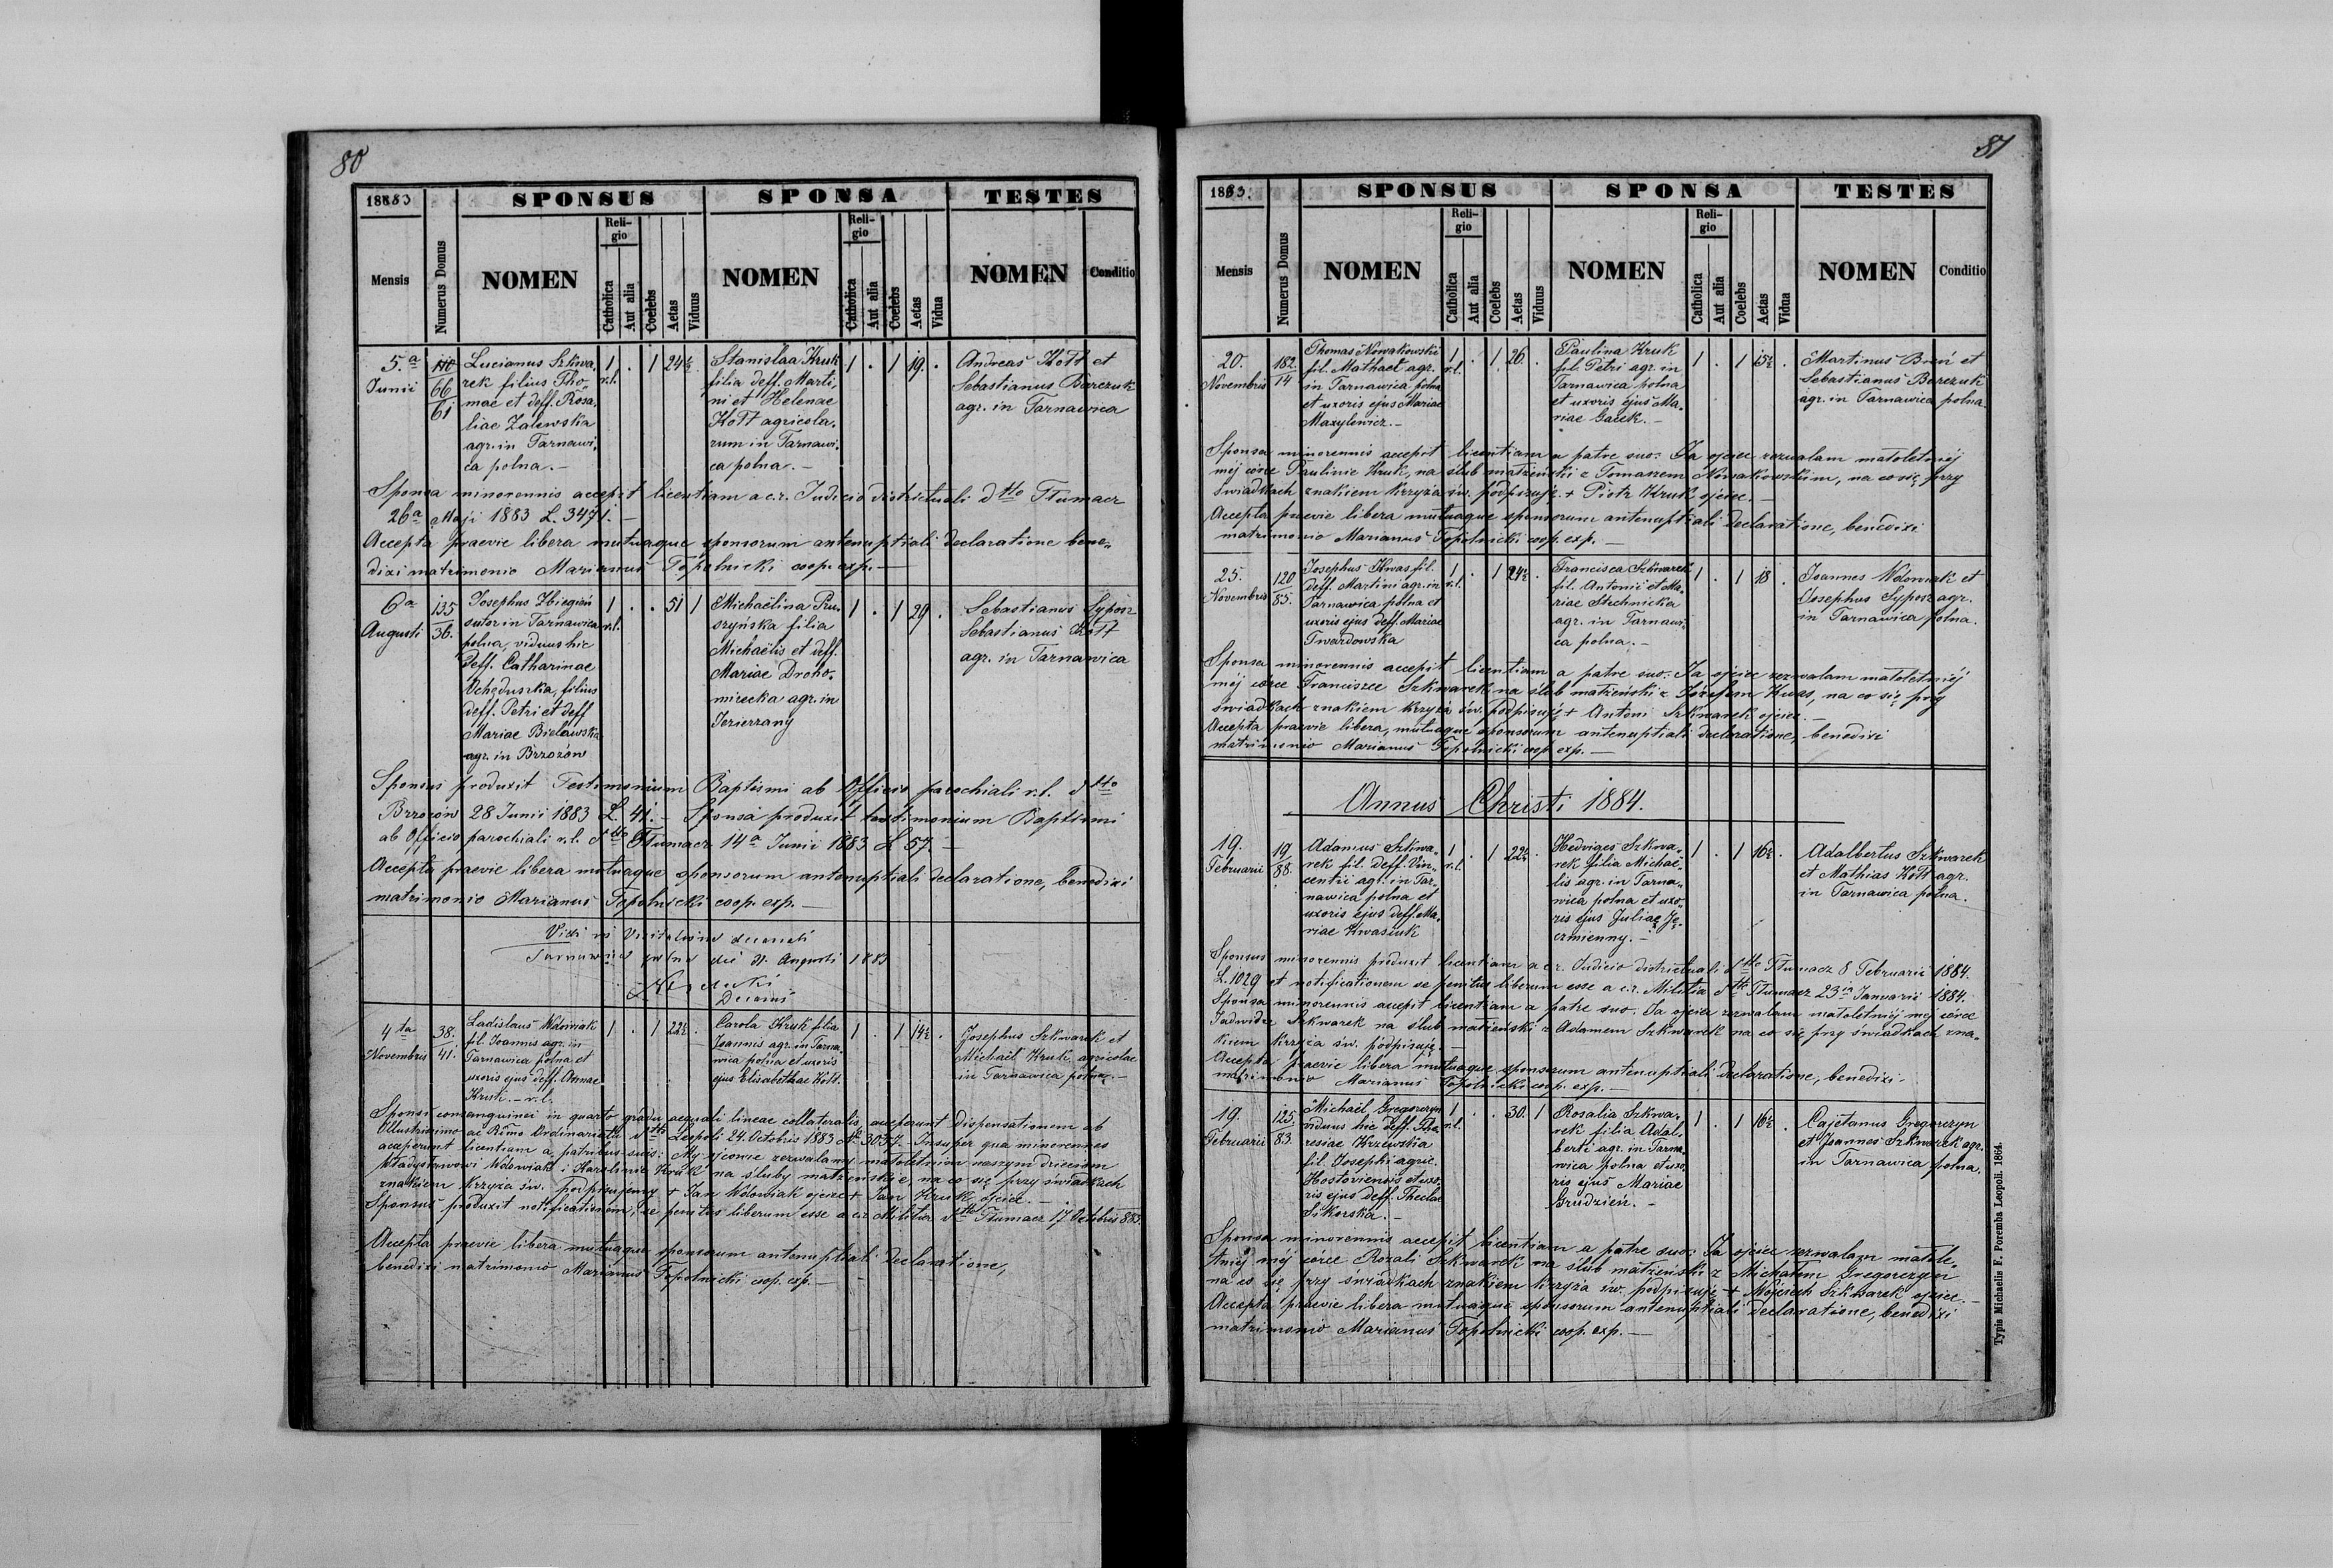 80
1883
SPONSUS
SPONSA
TESTES
Mensis
Numerus Domus
NOMEN
Religio
Catholica
Aut alia
Coelebs
Aetas
Viduus
NOMEN
Religio
Catholica
Aut alia
Coelebs
Aetas
Vidua
NOMEN
Conditio
5.a
Junii
66
61
Lucianus Szkwa-
rek filius Tho-
mae et deff. Rosa-
liae Zalewska
agr. in Tarnawi-
ca polna.-
1 r.l. . 1 24½
Stanislaa Kruk
filia deff. Marti-
ni et Helenae
Kott agricola-
rum in Tarnawi-
ca polna.-
1 . 1 19. .
Andreas Kott et
Sebastianus Barczuk
agr. in Tarnawica
Sponsa minorennis accepit licentiam a c.r. Judicio districtuali dtto Tłumacz
26a Maji 1883 L. 3471.-
Accepta praevie libera mutuaque sponsorum antenuptiali declaratione bene-
dixi matrimonio Marianus Topolnicki coop. exp.-
6a
Augusti
135
36.
Josephus Zbiegień
sutor in Tarnawica
polna, viduus hic
deff. Catharinae
Ochęduszka, filius
deff. Petri et deff
Mariae Bielawska
agr. in Brzozów
1 r.l. . . 51 1
Michaëlina Pru-
szyńska filia
Michaëlis et deff.
Mariae Droho-
mirecka agr. in
Jezierzany
1 . 1 29 .
Sebastianus Syposz
Sebastianus Kott
agr. in Tarnawica
Sponsus produxit Testimonium Baptismi ab Officio parochiali r.l. dtto
Brzozów 28 Junii 1883 L. 41.- Sponsa produxit testimonium Baptismi
ab Officio parochiali r.l. dtto Tłumacz 14a Junii 1883 L 57.-
Accepta praevie libera mutuaque sponsorum antenuptiali declaratione, benedixi
matrimonio Marianus Topolnicki coop. exp.-
Vidi in Visitatione decanali
Tarnawica polna die 21. Augusti 1883
Decanus
4ta
Novembris
38.
41.
Ladislaus Wdowiak
fil. Joannis agr. in
Tarnawica polna et
uxoris ejus deff. Annae
Kruk.- r.l.
1 . 1 22½ .
Carola Kruk filia
Joannis agr. in Tarna-
wica polna et uxoris
ejus Elisabethae Kott.
1 . 1 14½ .
Josephus Szkwarek et
Michaël Kruk agricolae
in Tarnawica polna.-
Sponsi consanguinei in quarto gradu aequali lineae collateralis acceperunt dispensationem ab
Illustrissimo ac Rdmo Ordinariatu dtto Leopoli 24. Octobris 1883 N. 3037.- Insuper qua minorennes
acceperunt licentiam a patribus suis: My ojcowie zezwalamy małoletnim naszym dzieciom
Władysławowi Wdowiak i Karolinie Kruk na śluby małżeńskie, na co się przy świadkach
znakiem krzyża św. podpisujemy + Jan Wdowiak ojciec + Jan Kruk ojciec.-
Sponsus produxit notificationem, se penitus liberum esse a c.r. Militia dtto Tłumacz 17 Octobris 883.
Accepta praevie libera mutuaque sponsorum antenuptiali declaratione,
benedixi matrimonio Marianus Topolnicki coop. exp.-
81
1883.
SPONSUS
SPONSA
TESTES
Mensis
Numerus Domus
NOMEN
Religio
Catholica
Aut alia
Coelebs
Aetas
Viduus
NOMEN
Religio
Catholica
Aut alia
Coelebs
Aetas
Vidua
NOMEN
Conditio
20.
Novembris
182
14
Thomas Nowakowski
fil. Mathaei agr.
in Tarnawica polna
et uxoris ejus Mariae
Maxylewicz.-
1 r.l. . 1 26. .
Paulina Kruk
fil. Petri agr. in
Tarnawica polna
et uxoris ejus Ma-
riae Gacek.-
1 . 1 15½ .
Martinus Breń et
Sebastianus Barczuk
agr. in Tarnawica polna.
Sponsa minorennis accepit licentiam a patre suo: Ja ojciec zezwalam małoletniéj
méj córce Paulinie Kruk, na ślub małżeński z Tomaszem Nowakowskim, na co się przy
świadkach znakiem krzyża św. podpisuję. + Piotr Kruk ojciec.-
Accepta praevie libera mutuaque sponsorum antenuptiali declaratione, benedixi
matrimonio Marianus Topolnicki coop. exp.-
25.
Novembris
120
85.
Josephus Kwas fil.
deff. Martini agr. in
Tarnawica polna et
uxoris ejus deff. Mariae
Twardowska
1 r.l. . 1 24½ .
Francisca Szkwarek
fil. Antonii et Ma-
riae Stechnicka
agr. in Tarnawi-
ca polna.-
1 . 1 18 .
Joannes Wdowiak et
Josephus Syposz agr.
in Tarnawica polna.
Sponsa minorennis accepit licentiam a patre suo: Ja ojciec zezwalam małoletniéj
méj córce Franciszce Szkwarek na ślub małżeński z Józefem Kwas, na co się przy
świadkach znakiem krzyża św. podpisuję + Antoni Szkwarek ojciec.-
Accepta praevie libera, mutuaque sponsorum antenuptiali declaratione, benedixi
matrimonio Marianus Topolnicki coop. exp.-
Annus Christi 1884.
19.
Februarii
19
88.
Adamus Szkwa-
rek fil. deff. Vin-
centii agr. in Tar-
nawica polna et
uxoris ejus deff. Ma-
riae Kwasiuk
1 r.l. . 1 22½ .
Hedviges Szkwa-
rek filia Michaë-
lis agr. in Tarna-
wica polna et uxo-
ris ejus Juliae Ję-
czmienny.-
1 . 1 16½ .
Adalbertus Szkwarek
et Mathias Kott agr.
in Tarnawica polna.
Sponsus minorennis produxit licentiam a c.r. Judicio districtuali dtto Tłumacz 8 Februarii 1884.
L. 1029 et notificationem se penitus liberum esse a c.r. Militia dtto Tłumacz 23a Januarii 1884.
Sponsa minorennis accepit licentiam a patre suo. Ja ojciec zezwalam małoletniéj mej córce
Jadwidze Szkwarek na ślub małżeński z Adamem Szkwarek na co się przy świadkach zna-
kiem krzyża św. podpisuję.-
Accepta praevie libera mutuaque sponsorum antenuptiali declaratione, benedixi
matrimonio Marianus Topolnicki coop. exp.-
19
Februarii
125.
83.
Michaël Gregorczyn
viduus hic deff. The-
resiae Krzewska
fil. Josephi agric.
Hostoviensis et uxo-
ris ejus deff. Theclae
Sikorska.-
1 r.l. . . 30. 1
Rosalia Szkwa-
rek filia Adal-
berti agr. in Tarna-
wica polna et uxo-
ris ejus Mariae
Grudzień.-
1 . 1 16½ .
Cajetanus Gregorczyn
et Joannes Szkwarek agr.
in Tarnawica polna.
Sponsa minorennis accepit licentiam a patre suo: Ja ojciec zezwalam małole-
tniéj méj córce Rozali Szkwarek na ślub małżeński z Michałem Gregorczyn
na co się przy świadkach znakiem krzyża św. podpisuję + Wojciech Szkwarek ojciec.-
Accepta praevie libera mutuaque sponsorum antenuptiali declaratione, benedixi
matrimonio Marianus Topolnicki coop. exp.-
Typis Michaelis F. Poremba Leopoli. 1864.